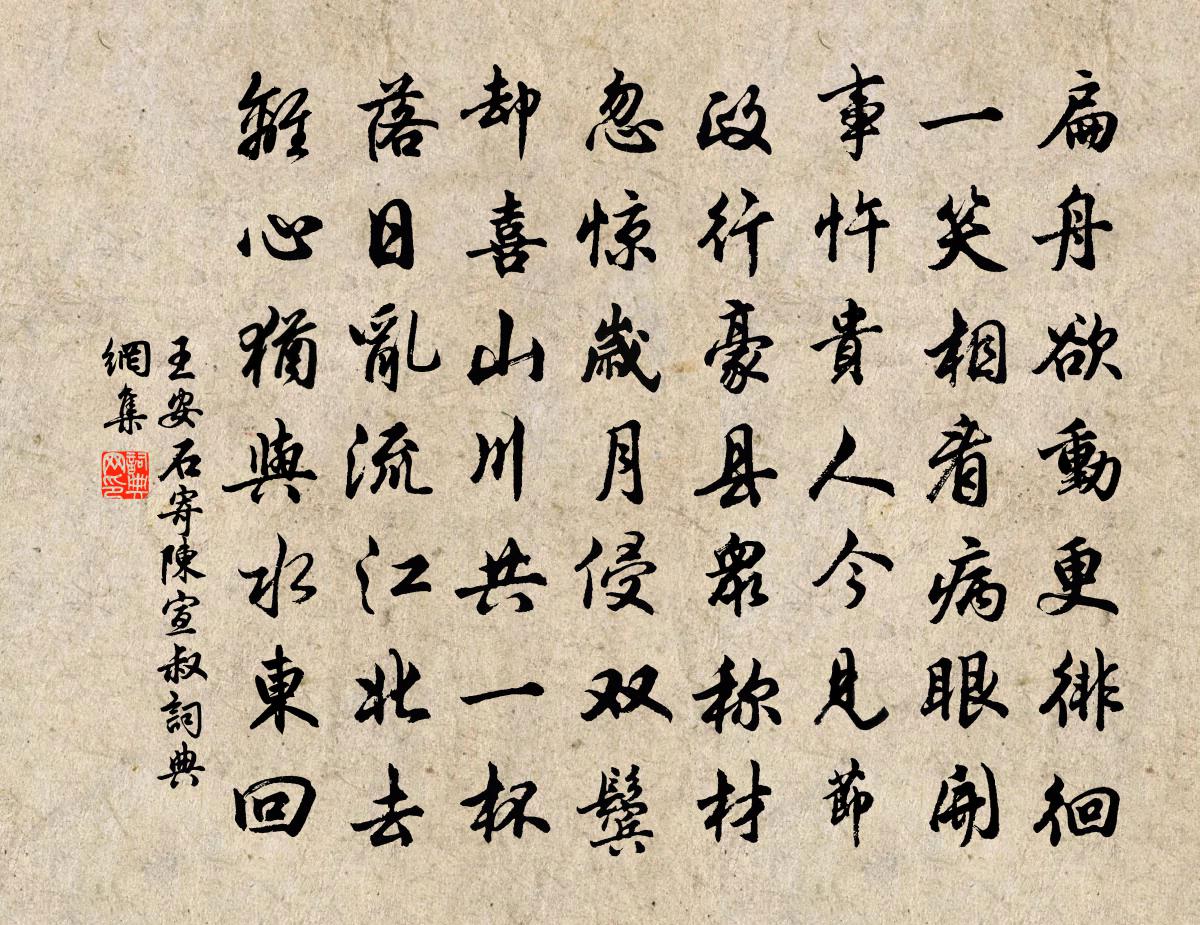 扁舟欲動更徘徊
一笑相看病眼開
事忤貴人今見節
政行豪县衆称材
忽惊歲月侵双鬓
却喜山川共一杯
落日亂流江北去
離心猶與水東回
王安石寄陳宣叔詞典
網集
詞典
网印